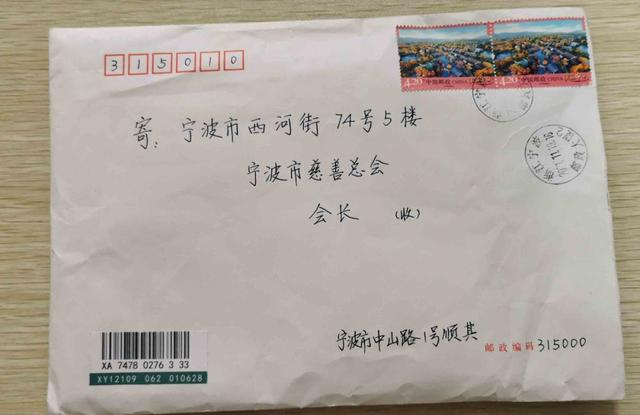 315010
4.20 中国邮政 CHINA
4.20 中国邮政 CHINA
寄: 宁波市西河街 74号5楼
宁波市慈善总会
会长 (收)
宁波市中山路1号顺其
邮政编码 315000
XA 7478 0276 3 33
XY12109 062 010628